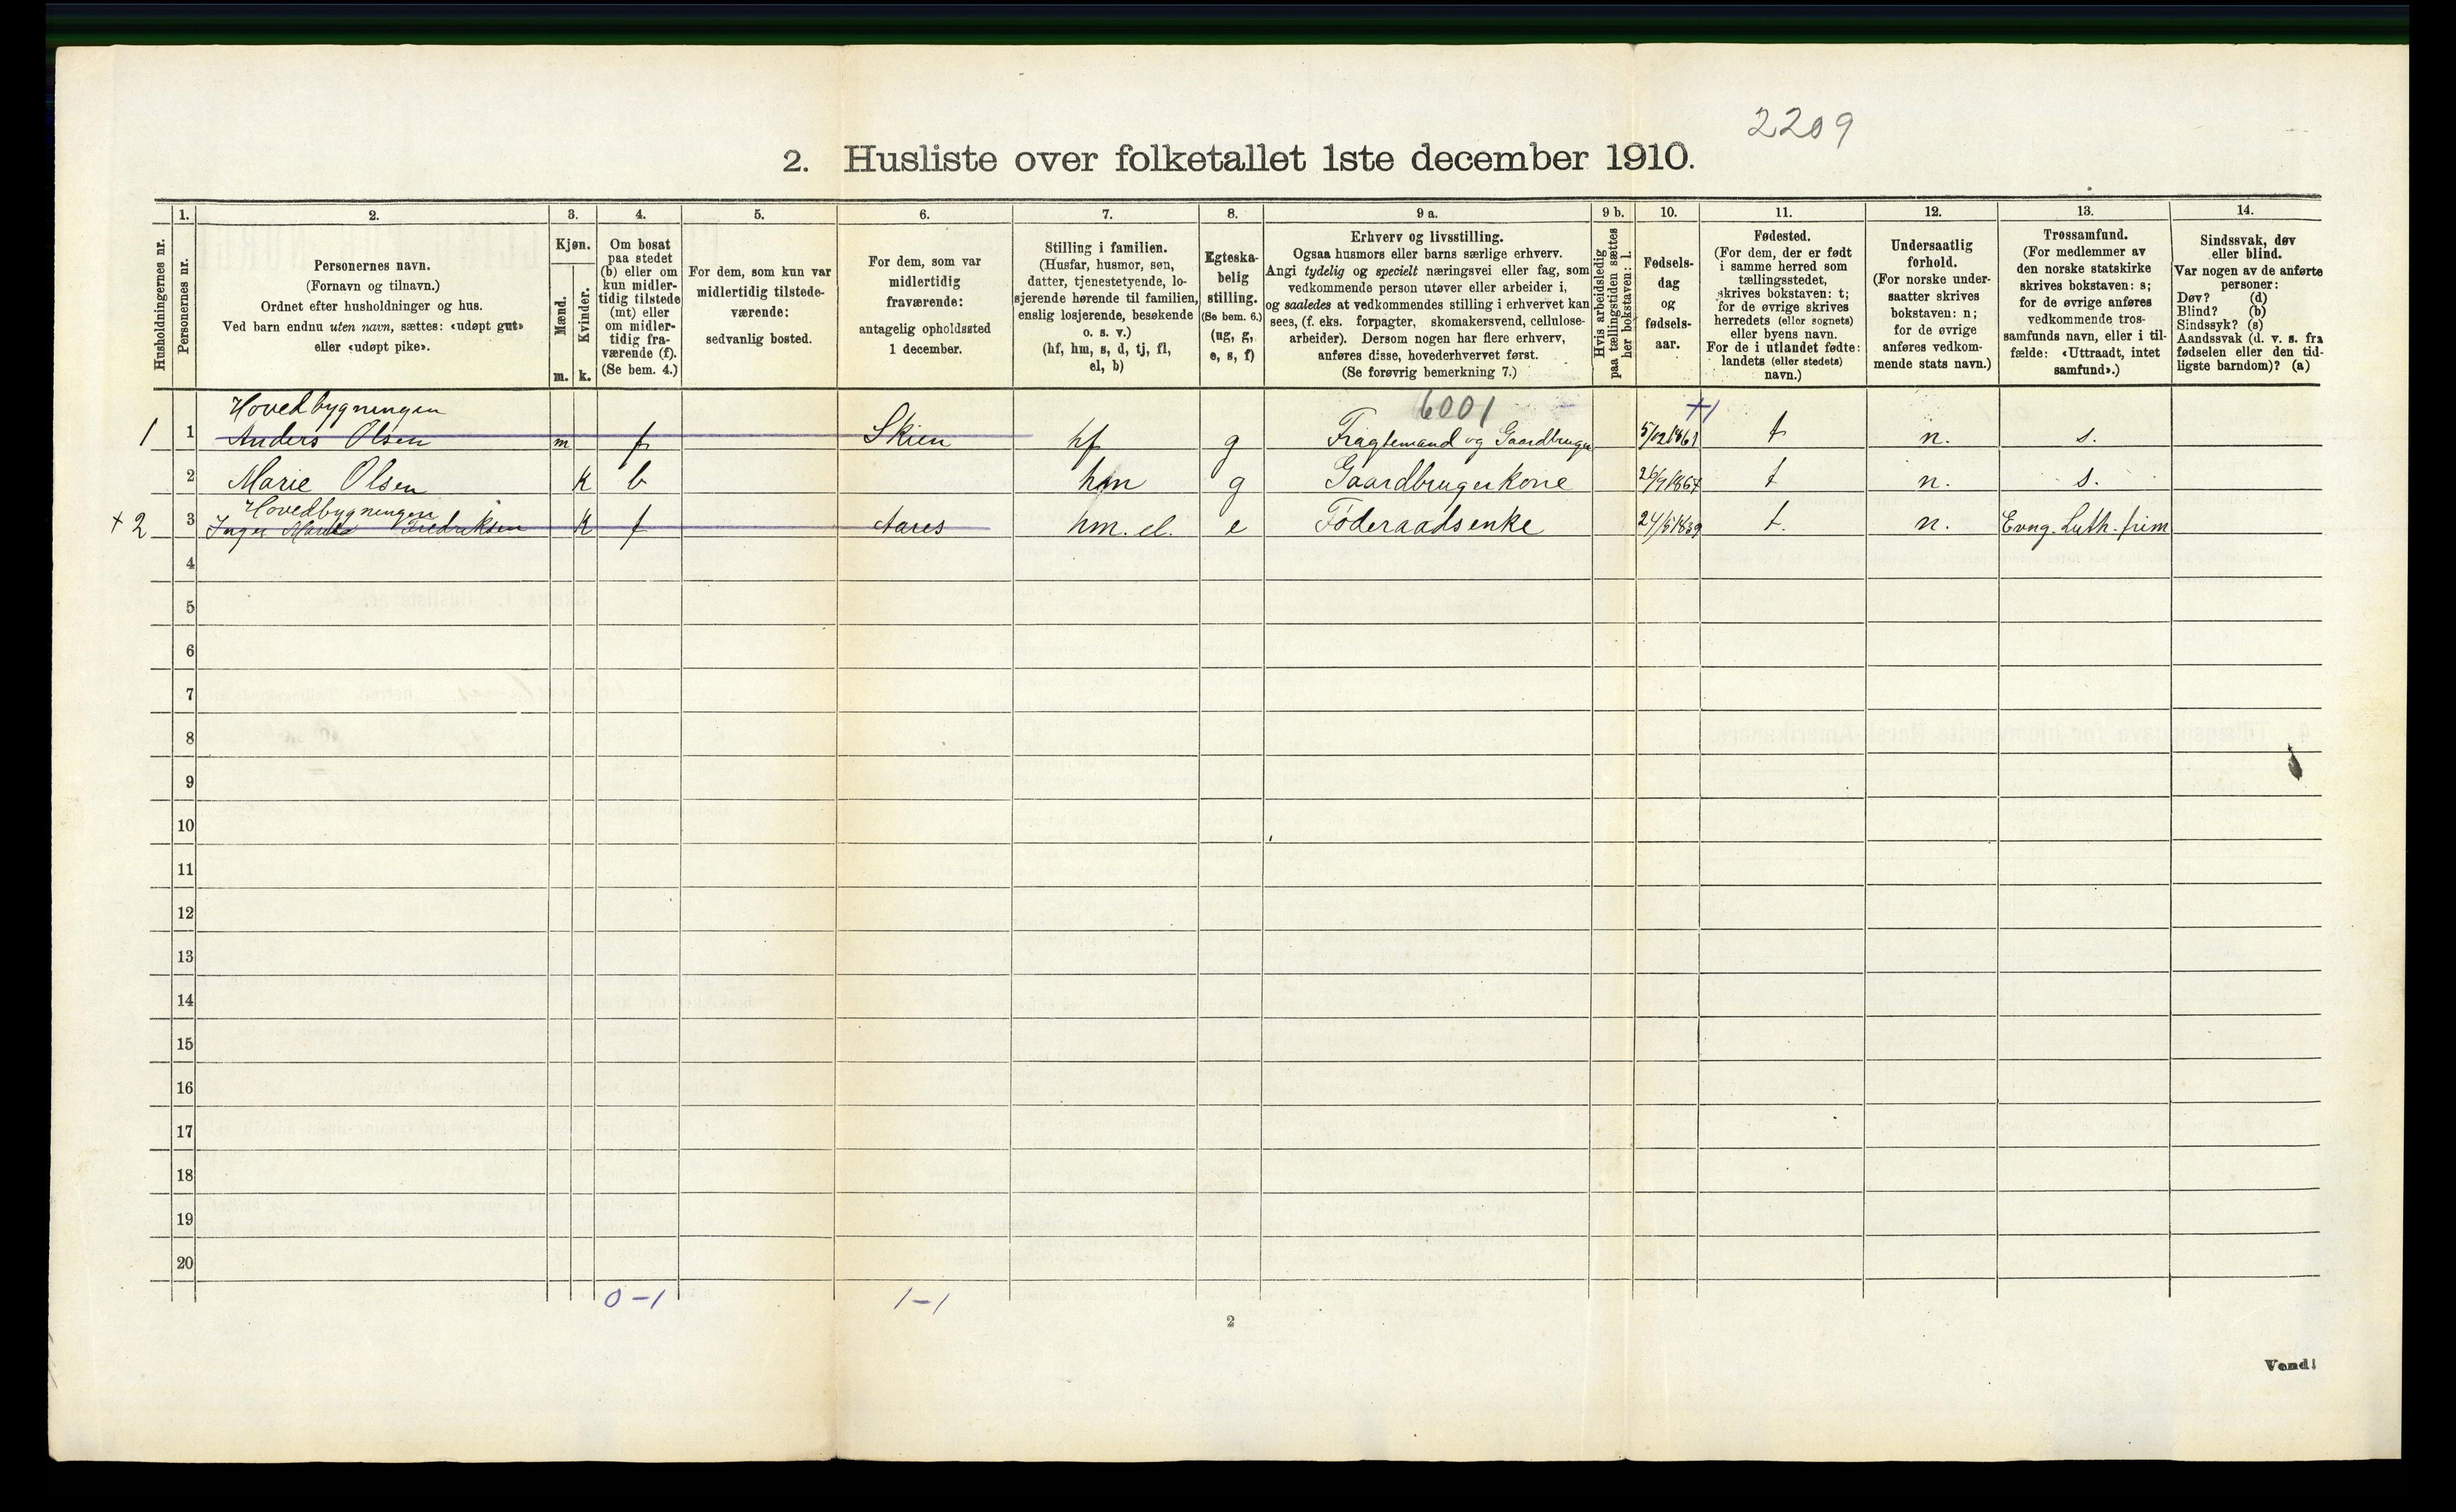 2209
2. Husliste over folketallet 1ste december 1910.
Husholdningernes nr.
1.
Personernes nr.
2.
Personernes navn.
(Fornavn og tilnavn.)
Ordnet efter husholdninger og hus.
Ved barn endnu uten navn, sættes: «udøpt gut»
eller «udøpt pike».
3.
Kjøn.
Mænd.
Kvinder.
m.
k.
4.
Om bosat
paa stedet
(b) eller om
kun midler-
tidig tilstede
(mt) eller
om midler-
tidig fra-
værende (f).
(Se bem. 4.)
5.
For dem, som kun var
midlertidig tilstede-
værende:
sedvanlig bosted.
6.
For dem, som var
midlertidig
fraværende:
antagelig opholdssted
1 december.
7.
Stilling i familien.
(Husfar, husmor, søn,
datter, tjenestetyende, lo-
sjerende hørende til familien,
enslig losjerende, besøkende
o. s. v.)
(hf, hm, s, d, tj, fl,
el, b)
8.
Egteska-
belig
stilling.
(Se bem. 6.)
(ug, g,
e, s, f)
9 a.
Erhverv og livsstilling.
Ogsaa husmors eller barns særlige erhverv.
Angi tydelig og specielt næringsvei eller fag, som
vedkommende person utøver eller arbeider i,
og saaledes at vedkommendes stilling i erhvervet kan
sees, (f. eks. forpagter, skomakersvend, cellulose-
arbeider). Dersom nogen har flere erhverv,
anføres disse, hovederhvervet først.
(Se forøvrig bemerkning 7.)
9 b.
Hvis arbeidsledig
paa tællingstiden sættes
her bokstaven: l.
10.
Fødsels-
dag
og
fødsels-
aar.
11.
Fødested.
(For dem, der er født
i samme herred som
tællingsstedet,
skrives bokstaven: t;
for de øvrige skrives
herredets (eller sognets)
eller byens navn.
For de i utlandet fødte:
landets (eller stedets)
navn.)
12.
Undersaatlig
forhold.
(For norske under-
saatter skrives
bokstaven: n;
for de øvrige
anføres vedkom-
mende stats navn.)
13.
Trossamfund.
(For medlemmer av
den norske statskirke
skrives bokstaven: s;
for de øvrige anføres
vedkommende tros-
samfunds navn, eller i til-
fælde: «Uttraadt, intet
samfund».)
14.
Sindssvak, døv
eller blind.
Var nogen av de anførte
personer:
Døv? (d)
Blind? (b)
Sindssyk? (s)
Aandssvak (d. v. s. fra
fødselen eller den tid-
ligste barndom)? (a)
Hovedbygningen
6001
1 1 Anders Olsen m f Skien hf g Fragtemand og Gaardbruger 5/12 1861 t n. s.
2 Marie Olsen k b hm g Gaardbrugerkone 26/9 1864 t n. s.
Hovedbygningen
+ 2 3 Inger Fredriksen k f Aares hm. el. e Føderaadsenke 24/5 1839 t. n. Evng. Luth. frim
4
5
6
7
8
9
10
11
12
13
14
15
16
17
18
19
20
0-1 1-1
2
Vend!